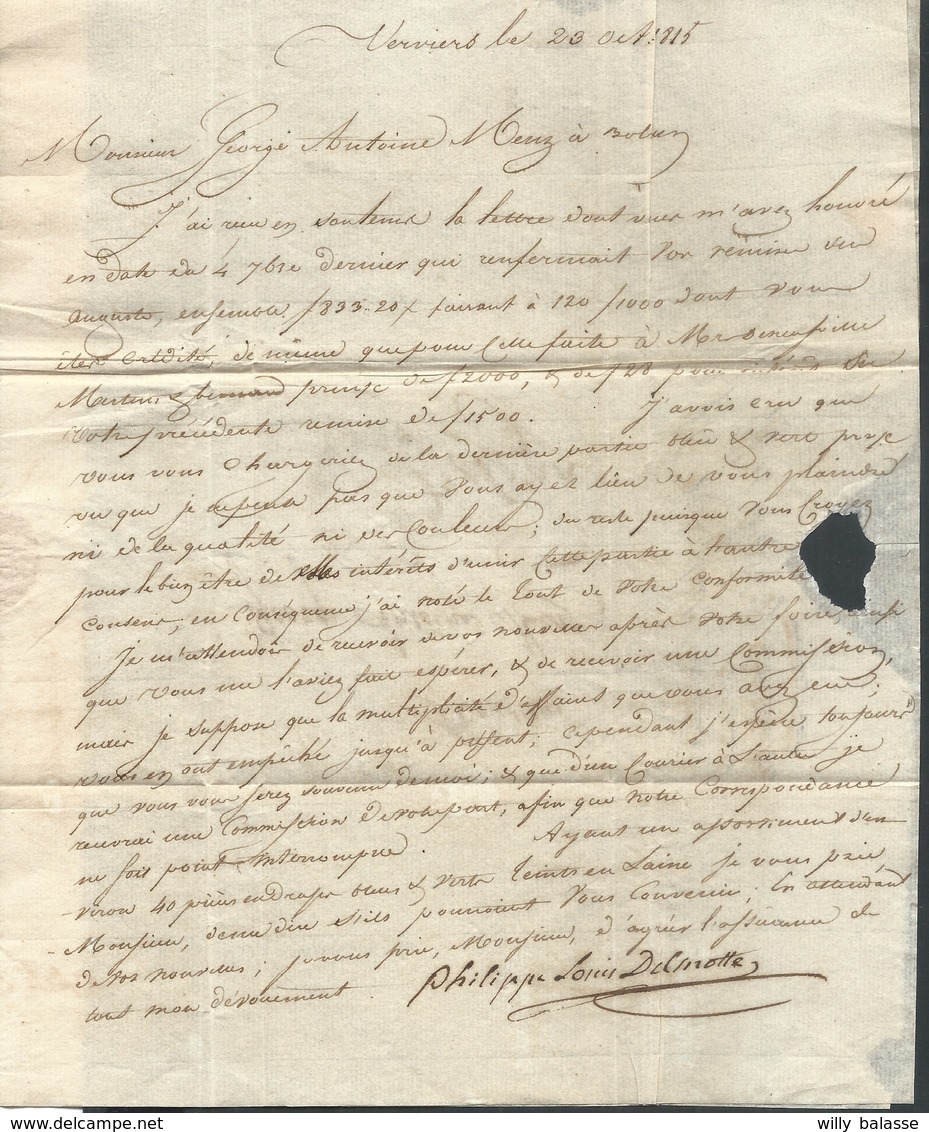 Verviers le 23 Oct. 1815
Monsieur George Antoine Menz à Bolzen
J'ai reçu en son tems la lettre dont vous m'avez honoré
en date du 4 7bre dernier qui renfermoit vos remise sur
Auguste, ensemble f 833..20 x faisant à 120 f 1000 dont vous
êtes crédité, de même que pour celle faite à Mr
Martens de f 2000, & de f 28 pour
votre précédente remise de f 1500. J'avois cru que
vous vous chargeriez de la dernière partie bleu & vert
vu que je pas que vous ayez lieu de vous plaindre
ni de la qualité ni des couleurs; du reste puisque vous croyez
pour le bien être de intérêts d'unir cette partie à l'autre
consens, en conséquence j'ai noté le tout de votre conformité
Je m'attendois de recevoir de vos nouvelles après votre foire, ainsi
que vous me l'aviez fait espérer, & de recevoir une Commission,
mais je suppose que la multiplicité d'affaires que vous avez eu,
vous en ont empêché jusqu'à présent; cependant j'espère toujours
que vous vous serez souvenu de moi; & que d'un Courier à l'autre je
recevrai une Commission de votre part, afin que notre Correspondance
ne soit point interrompue. Ayant un assortiment d'en
-viron 40 pièces en draps bleus & verts teints en laine je vous prie,
- Monsieur, de me dire s'ils pourroient vous convenir; En attendant
de vos nouvelles; je vous prie, Monsieur, d'agréer l'assurance de
tout mon dévouement. Philippe Louis Delmotte
willy balasse